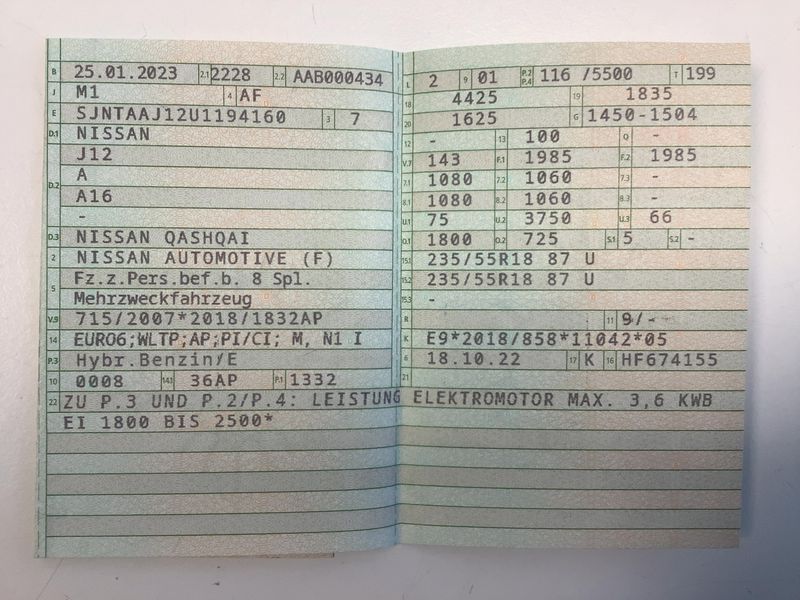 B 25.01.2023 2.1 2228 2.2 AAB000434
J M1 4 AF
E SJNTAAJ12U1194160 3 7
D.1 NISSAN
D.2 J12
A
A16
-
D.3 NISSAN QASHQAI
2 NISSAN AUTOMOTIVE (F)
5 Fz.z.Pers.bef.b. 8 Spl.
Mehrzweckfahrzeug
V.9 715/2007*2018/1832AP
14 EURO6;WLTP;AP;PI/CI; M, N1 I
P.3 Hybr.Benzin/E
10 0008 14.1 36AP P.1 1332
L 2 9 01 P.2 P.4 116 /5500 T 199
18 4425 19 1835
20 1625 G 1450-1504
12 - 13 100 Q -
V.7 143 F.1 1985 F.2 1985
7.1 1080 7.2 1060 7.3 -
8.1 1080 8.2 1060 8.3 -
U.1 75 U.2 3750 U.3 66
O.1 1800 O.2 725 S.1 5 S.2 -
15.1 235/55R18 87 U
15.2 235/55R18 87 U
15.3 -
R 11 9/-
K E9*2018/858*11042*05
6 18.10.22 17 K 16 HF674155
21
22 ZU P.3 UND P.2/P.4: LEISTUNG ELEKTROMOTOR MAX. 3,6 KWB
EI 1800 BIS 2500*